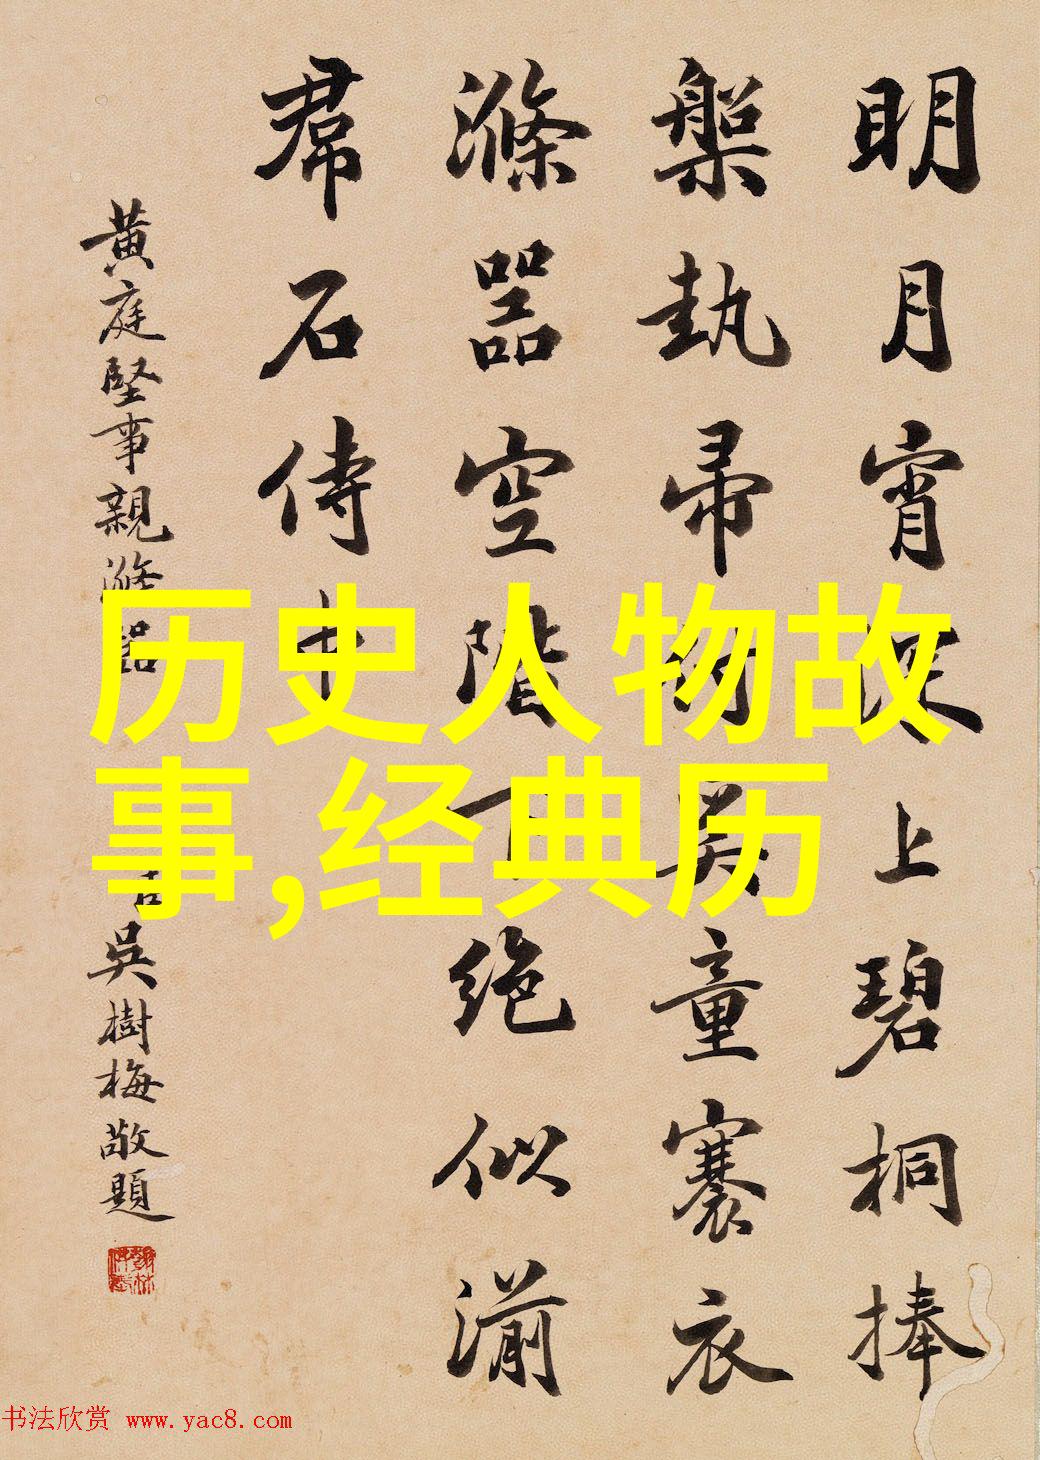 明月宵深上碧桐捧
槃执帚	吴童褰衣
滌器空階下绝似湔
帬石侍中
黄庭堅事親滌器
吳樹梅敬題
历史人物故
事,经典历
书法欣赏 www.yac8.com